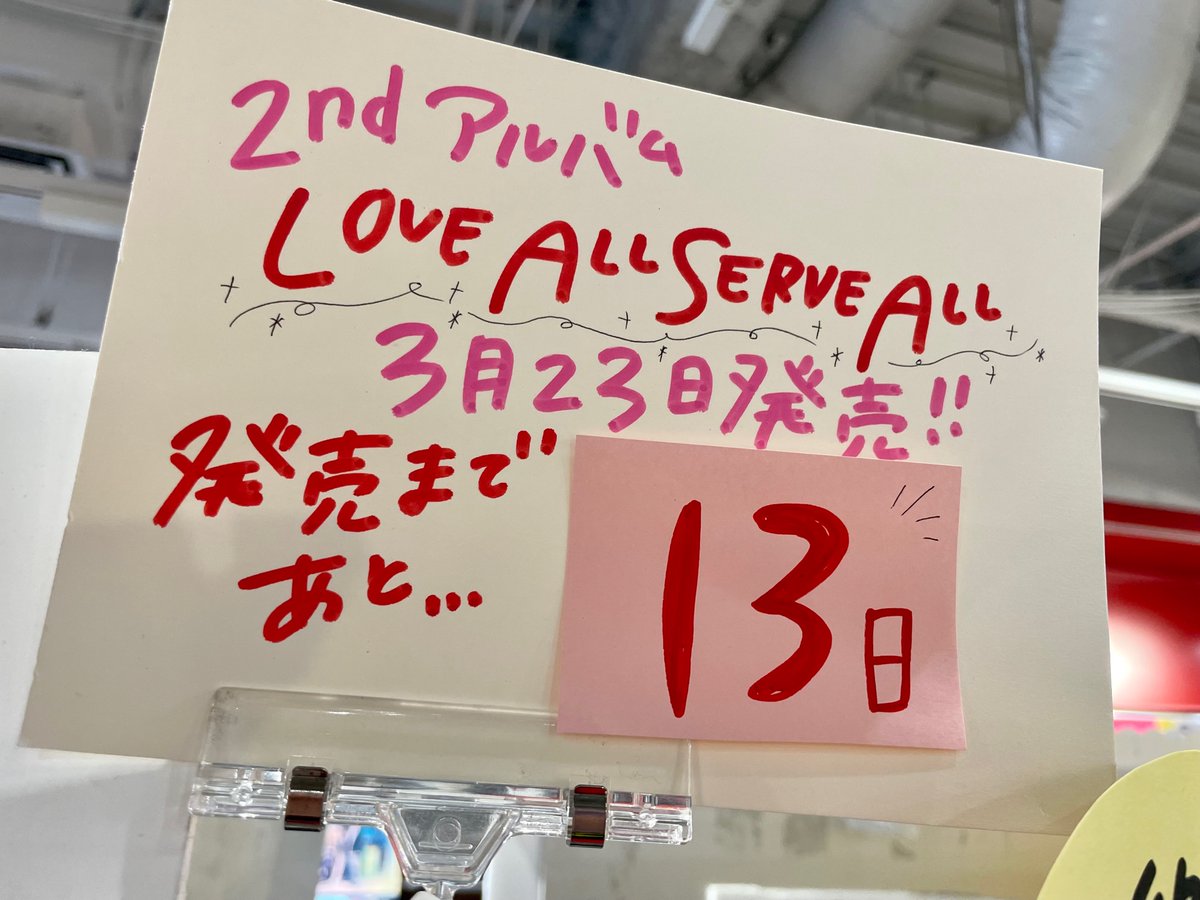 2nd アルバム
LOVE ALL SERVE ALL
3月23日発売!!
発売まで
あと...
13日